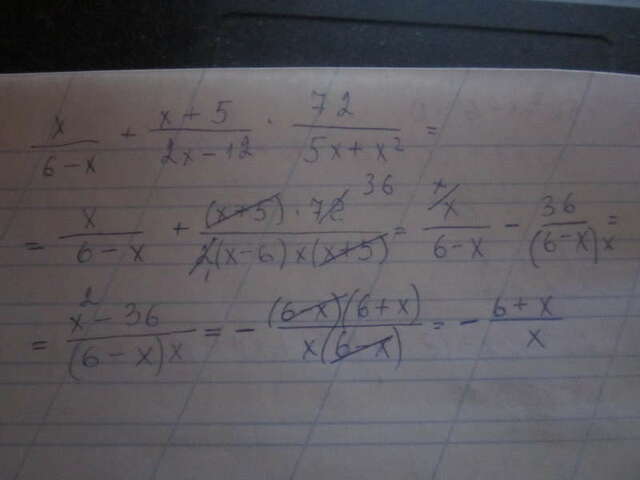 x/(6-x) + (x+5)/(2x-12) · 72/(5x+x²) =
= x/(6-x) + ((x+5)·72 36)/(2 1(x-6)x(x+5)) = x/ x/(6-x) - 36/((6-x)x) =
= (x²-36)/((6-x)x) = - ((6-x)(6+x))/(x(6-x)) = - (6+x)/x